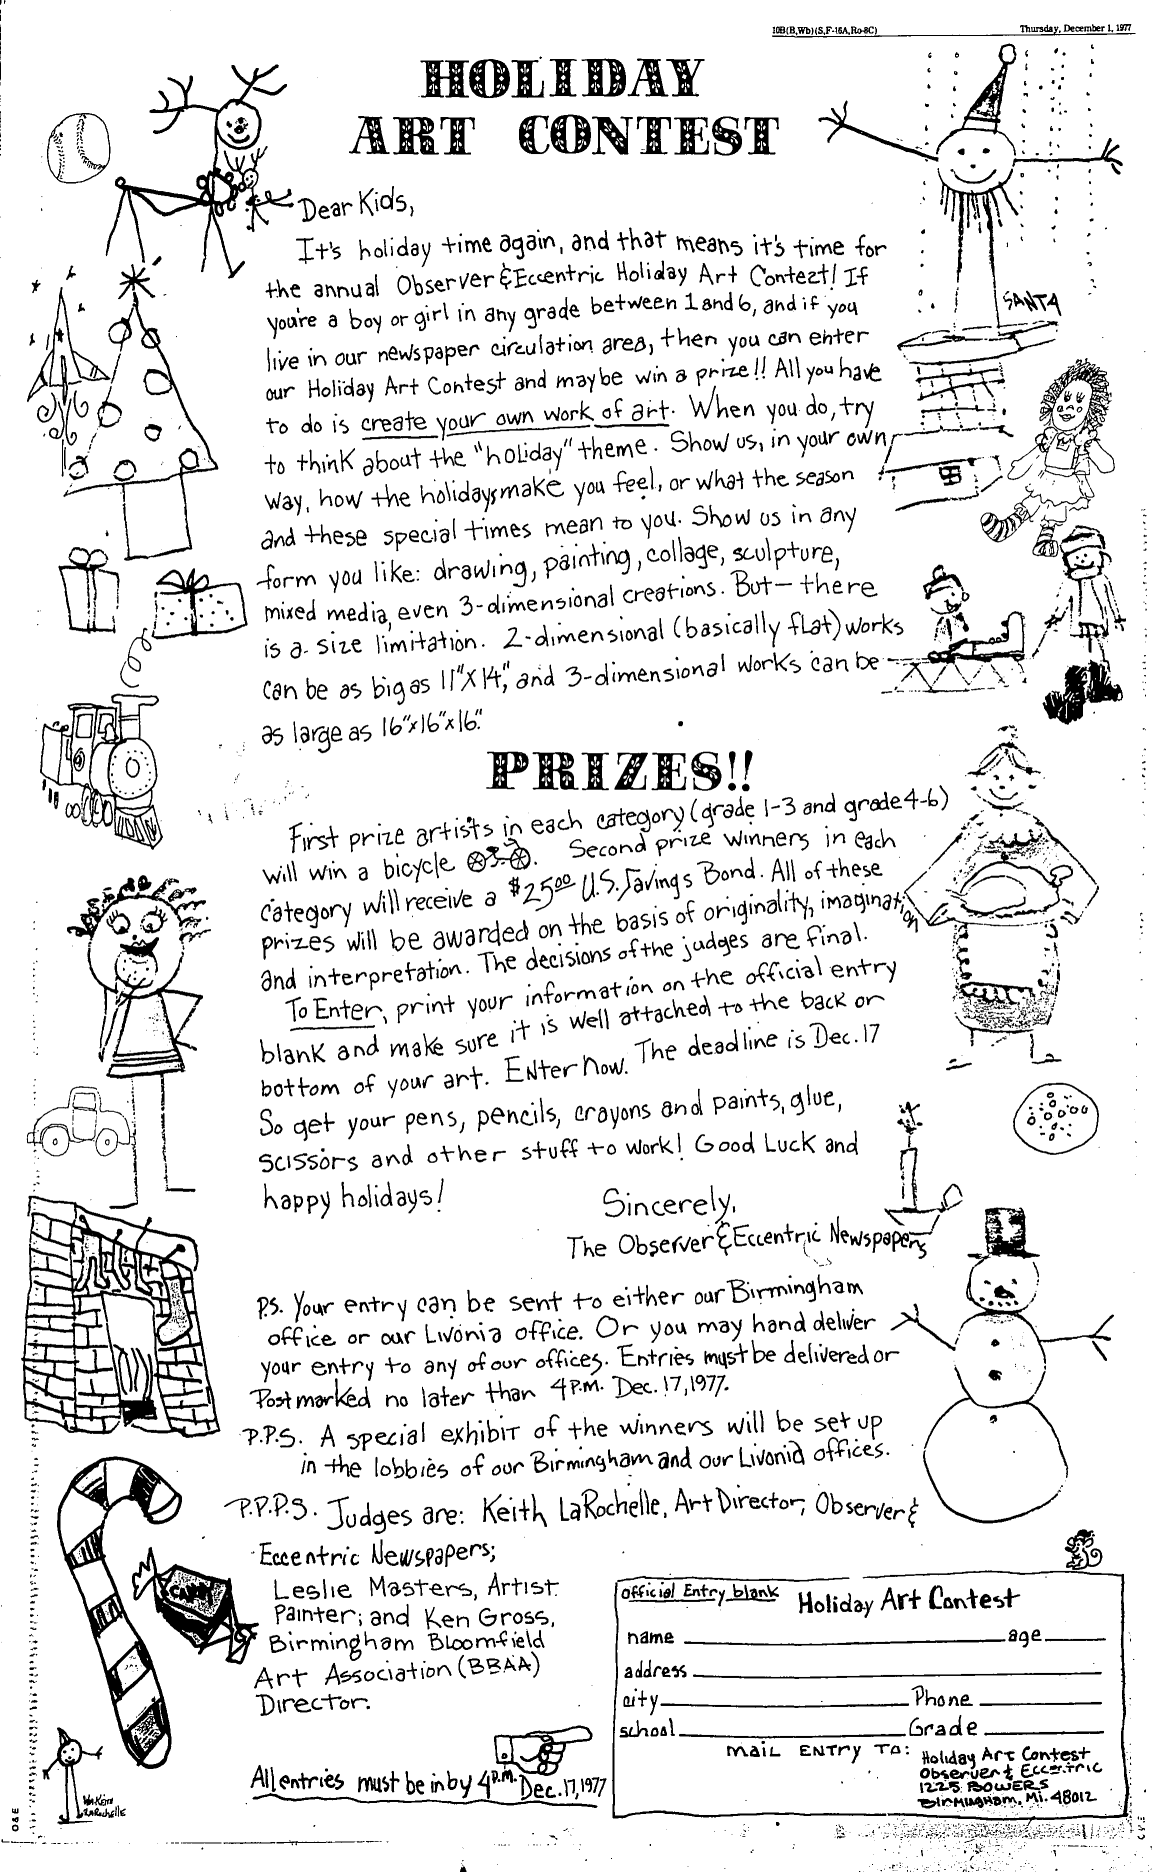 10B(B,Wb)(S,F-16A,Ro-8C)
Thursday, December 1, 1977
HOLIDAY
ART CONTEST
Dear Kids,
It's holiday time again, and that means it's time for
the annual Observer & Eccentric Holiday Art Contezt! If
you're a boy or girl in any grade between 1 and 6, and if you
live in our newspaper circulation area, then you can enter
our Holiday Art Contest and maybe win a prize!! All you have
to do is create your own work of art. When you do, try
to think about the "holiday" theme. Show us, in your own
way, how the holidays make you feel, or what the season
and these special times mean to you. Show us in any
form you like: drawing, painting, collage, sculpture,
mixed media, even 3-dimensional creations. But— there
is a size limitation. 2-dimensional (basically flat) works
can be as big as 11"X14", and 3-dimensional works can be
as large as 16"x16"x16".
SANTA
PRIZES!!
First prize artists in each category (grade 1-3 and grade 4-6)
will win a bicycle. Second prize winners in each
category will receive a $25.00 U.S. Savings Bond. All of these
prizes will be awarded on the basis of originality, imagination
and interpretation. The decisions of the judges are final.
To Enter, print your information on the official entry
blank and make sure it is well attached to the back or
bottom of your art. Enter Now. The deadline is Dec. 17
So get your pens, pencils, crayons and paints, glue,
scissors and other stuff to work! Good Luck and
happy holidays!
Sincerely,
The Observer & Eccentric Newspapers
P.S. Your entry can be sent to either our Birmingham
office or our Livonia office. Or you may hand deliver
your entry to any of our offices. Entries must be delivered or
Postmarked no later than 4 P.M. Dec. 17, 1977.
P.P.S. A special exhibit of the winners will be set up
in the lobbies of our Birmingham and our Livonia offices.
P.P.P.S. Judges are: Keith LaRochelle, Art Director, Observer &
Eccentric Newspapers;
Leslie Masters, Artist
Painter; and Ken Gross,
Birmingham Bloomfield
Art Association (BBAA)
Director.
CANDY
All entries must be in by 4 P.M. Dec. 17, 1977
Official Entry blank Holiday Art Contest
name age
address
city Phone
school Grade
Mail Entry To: Holiday Art Contest
Observer & Eccentric
1225 Bowers
Birmingham, Mi. 48012
LaRochelle
O&E